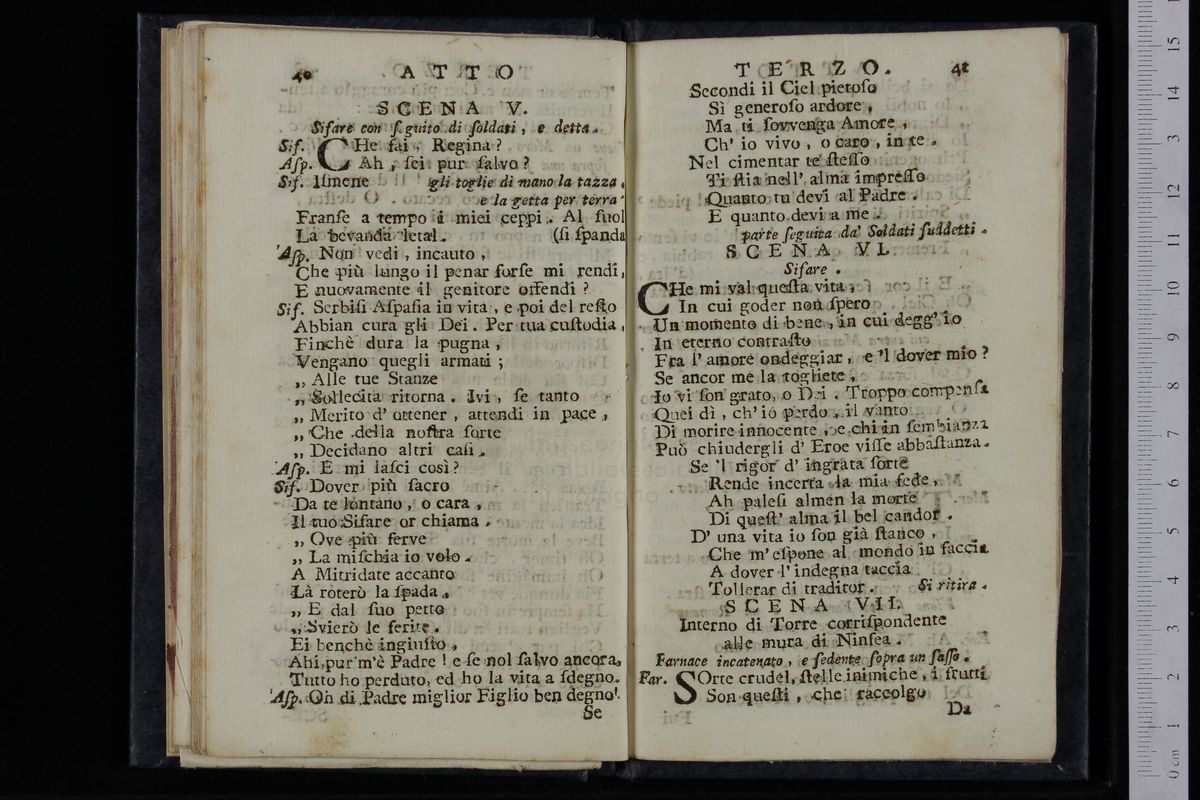 40 ATTO
SCENA V.
Sifare con seguito di ſoldati, e detta.
Sif. CHe fai, Regina?
Aſp. Ah, ſei pur ſalvo?
Sif. Iſmene gli toglie di mano la tazza,
e la getta per terra
Franſe a tempo i miei ceppi. Al ſuol
La bevanda letal. (ſi ſpanda
Aſp. Non vedi, incauto,
Che più lungo il penar forſe mi rendi,
E nuovamente il genitore offendi?
Sif. Serbiſi Aſpaſia in vita, e poi del reſto
Abbian cura gli Dei. Per tua cuſtodia,
Finchè dura la pugna,
Vengano quegli armati;
„ Alle tue Stanze
„ Sollecita ritorna. Ivi, ſe tanto
„ Merito d' ottener, attendi in pace,
„ Che della noſtra ſorte
„ Decidano altri caſi.
Aſp. E mi laſci così?
Sif. Dover più ſacro
Da te lontano, o cara,
Il tuo Sifare or chiama.
„ Ove più ferve
„ La miſchia io volo.
A Mitridate accanto
Là roterò la ſpada,
„ E dal ſuo petto
„ Svierò le ferite.
Ei benchè ingiuſto,
Ahi, pur m'è Padre! e ſe nol ſalvo ancora,
Tutto ho perduto, ed ho la vita a ſdegno.
Aſp. Oh di Padre miglior Figlio ben degno!
Se
TERZO. 41
Secondi il Ciel pietoſo
Sì generoſo ardore,
Ma ti ſovvenga Amore,
Ch' io vivo, o caro, in te.
Nel cimentar te ſteſſo
Ti ſtia nell' alma impreſſo
Quanto tu devi al Padre.
E quanto devi a me.
parte ſeguita da' Soldati ſuddetti.
SCENA VI.
Sifare.
CHe mi val queſta vita,
In cui goder non ſpero
Un momento di bene, in cui degg' io
In eterno contraſto
Fra l' amore ondeggiar, e 'l dover mio?
Se ancor me la togliete,
Io vi ſon grato, o Dei. Troppo compenſa
Quei dì, ch' io perdo, il vanto
Di morire innocente, e chi in ſembianza
Può chiudergli d' Eroe viſſe abbaſtanza.
Se 'l rigor d' ingrata ſorte
Rende incerta la mia fede,
Ah paleſi almen la morte
Di queſt' alma il bel candor.
D' una vita io ſon già ſtanco,
Che m' eſpone al mondo in faccia
A dover l' indegna taccia
Tollerar di traditor. Si ritira.
SCENA VII.
Interno di Torre corriſpondente
alle mura di Ninfea.
Farnace incatenato, e ſedente ſopra un ſaſſo.
Far. SOrte crudel, ſtelle inimiche, i frutti
Son queſti, che raccolgo
Da
0 cm 1 2 3 4 5 6 7 8 9 10 11 12 13 14 15